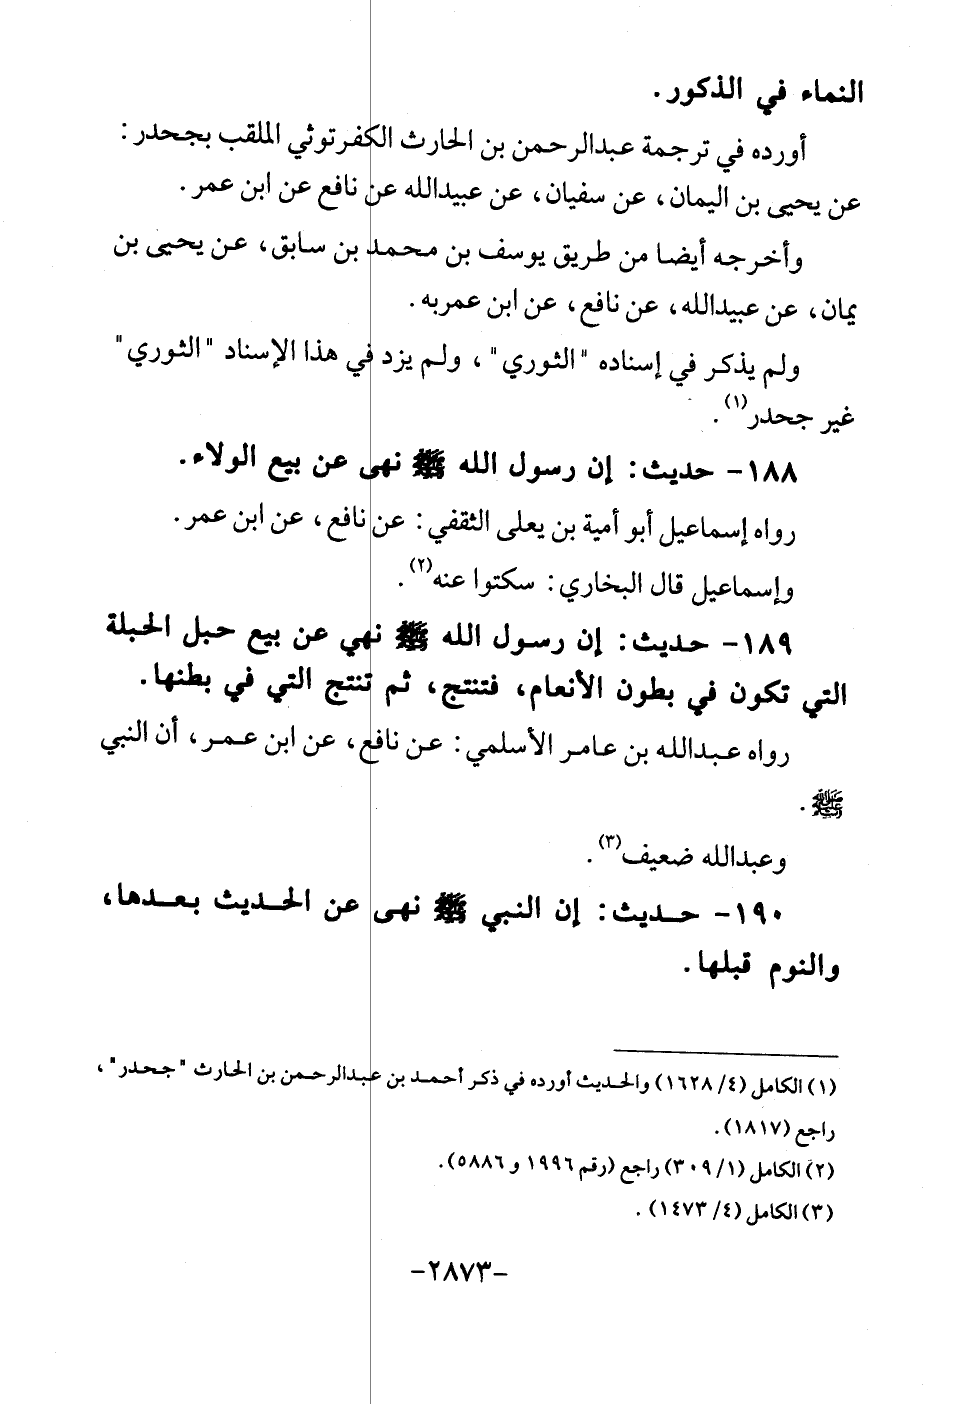 النماء في الذكور.
أورده في ترجمة عبدالرحمن بن الحارث الكفرتوثي الملقب بجحدر:
عن يحيى بن اليمان، عن سفيان، عن عبيدالله عن نافع عن ابن عمر.
وأخرجه أيضا من طريق يوسف بن محمد بن سابق، عن يحيى بن
يمان، عن عبيدالله، عن نافع، عن ابن عمربه.
ولم يذكر في إسناده "الثوري"، ولم يزد في هذا الإسناد "الثوري"
غير جحدر(١).
١٨٨- حديث: إن رسول الله ﷺ نهى عن بيع الولاء.
رواه إسماعيل أبو أمية بن يعلى الثقفي: عن نافع، عن ابن عمر.
وإسماعيل قال البخاري: سكتوا عنه(٢).
١٨٩- حديث: إن رسول الله ﷺ نهي عن بيع حبل الحبلة
التي تكون في بطون الأنعام، فتنتج، ثم تنتج التي في بطنها.
رواه عبدالله بن عامر الأسلمي: عن نافع، عن ابن عمر، أن النبي
ﷺ.
وعبدالله ضعيف(٣).
١٩٠- حديث: إن النبي ﷺ نهى عن الحديث بعدها،
والنوم قبلها.
(١) الكامل (٤/ ١٦٢٨) والحديث أورده في ذكر أحمد بن عبدالرحمن بن الحارث "جحدر"،
راجع (١٨١٧).
(٢) الكامل (١/ ٣٠٩) راجع (رقم ١٩٩٦ و ٥٨٨٦).
(٣) الكامل (٤/ ١٤٧٣).
-٢٨٧٣-